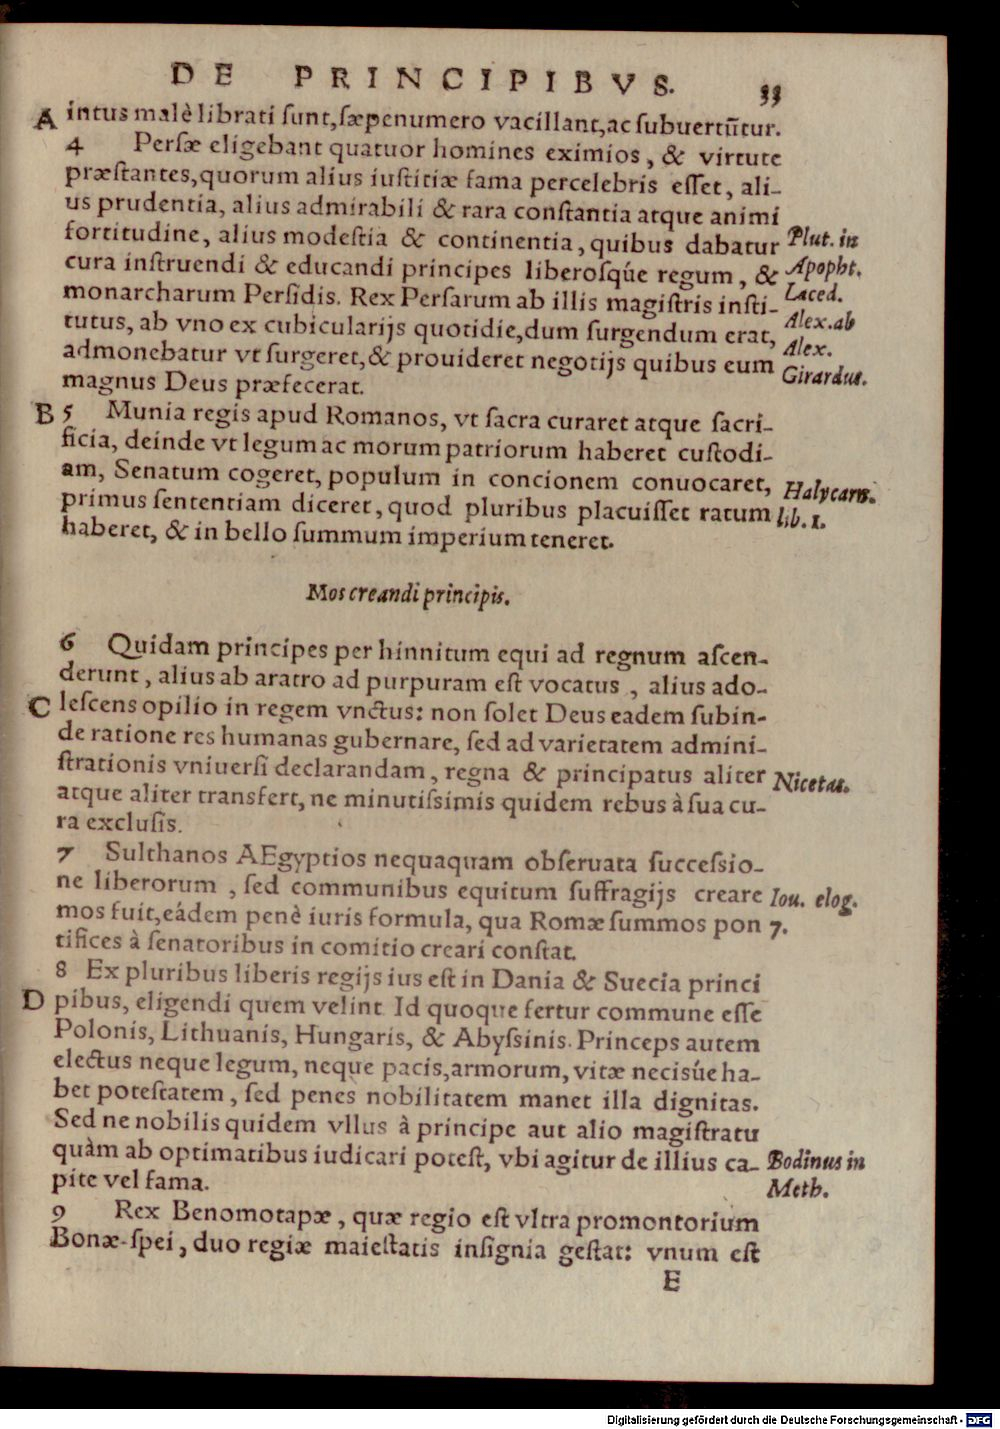 DE PRINCIPIBVS. 33
A intus malè librati ſunt,ſæpenumero vacillant,ac ſubuertūtur.
4 Perſæ eligebant quatuor homines eximios, & virtute
præſtantes,quorum alius iuſtitiæ fama percelebris eſſet, ali-
us prudentia, alius admirabili & rara conſtantia atque animi
fortitudine, alius modeſtia & continentia, quibus dabatur Plut. in
cura inſtruendi & educandi principes liberoſq́ue regum, & Apopht.
monarcharum Perſidis. Rex Perſarum ab illis magiſtris inſti- Laced.
tutus, ab vno ex cubicularijs quotidie,dum ſurgendum erat, Alex.ab
admonebatur vt ſurgeret,& prouideret negotijs quibus eum Alex.
magnus Deus præfecerat. Girardus.
B 5 Munia regis apud Romanos, vt ſacra curaret atque ſacri-
ficia, deinde vt legum ac morum patriorum haberet cuſtodi-
am, Senatum cogeret, populum in concionem conuocaret, Halycarn.
primus ſententiam diceret, quod pluribus placuiſſet ratum lib. 1.
haberet, & in bello ſummum imperium teneret.
Mos creandi principis.
6 Quidam principes per hinnitum equi ad regnum aſcen-
derunt, alius ab aratro ad purpuram eſt vocatus, alius ado-
C leſcens opilio in regem vnctus: non ſolet Deus eadem ſubin-
de ratione res humanas gubernare, ſed ad varietatem admini-
ſtrationis vniuerſi declarandam, regna & principatus aliter Nicetas.
atque aliter transfert, ne minutiſsimis quidem rebus à ſua cu-
ra excluſis.
7 Sulthanos AEgyptios nequaquam obſeruata ſucceſsio-
ne liberorum, ſed communibus equitum ſuffragijs creare Iou. elog.
mos fuit,eádem penè iuris formula, qua Romæ ſummos pon 7.
tifices à ſenatoribus in comitio creari conſtat.
8 Ex pluribus liberis regijs ius eſt in Dania & Suecia princi
D pibus, eligendi quem velint Id quoque fertur commune eſſe
Polonis, Lithuanis, Hungaris, & Abyſsinis. Princeps autem
electus neque legum, neque pacis,armorum, vitæ neciśue ha-
bet poteſtatem, ſed penes nobilitatem manet illa dignitas.
Sed ne nobilis quidem vllus à principe aut alio magiſtratu
quàm ab optimatibus iudicari poteſt, vbi agitur de illius ca- Bodinus in
pite vel fama. Meth.
9 Rex Benomotapæ, quæ regio eſt vltra promontorium
Bonæ-ſpei, duo regiæ maieſtatis inſignia geſtat: vnum eſt
E
Digitalisierung gefördert durch die Deutsche Forschungsgemeinschaft - DFG